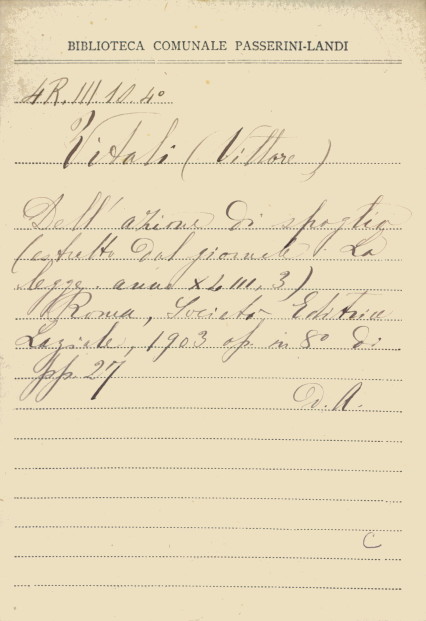 BIBLIOTECA COMUNALE PASSERINI-LANDI
4R. III 10. 4º
Vitali (Vittore)
Dell' azione di spoglio
(estratto dal giornale: La
legge anno XLIII. 3)
Roma, Società Editrice
Laziale, 1903 op. in 8º di
pp. 27
D. A.
C